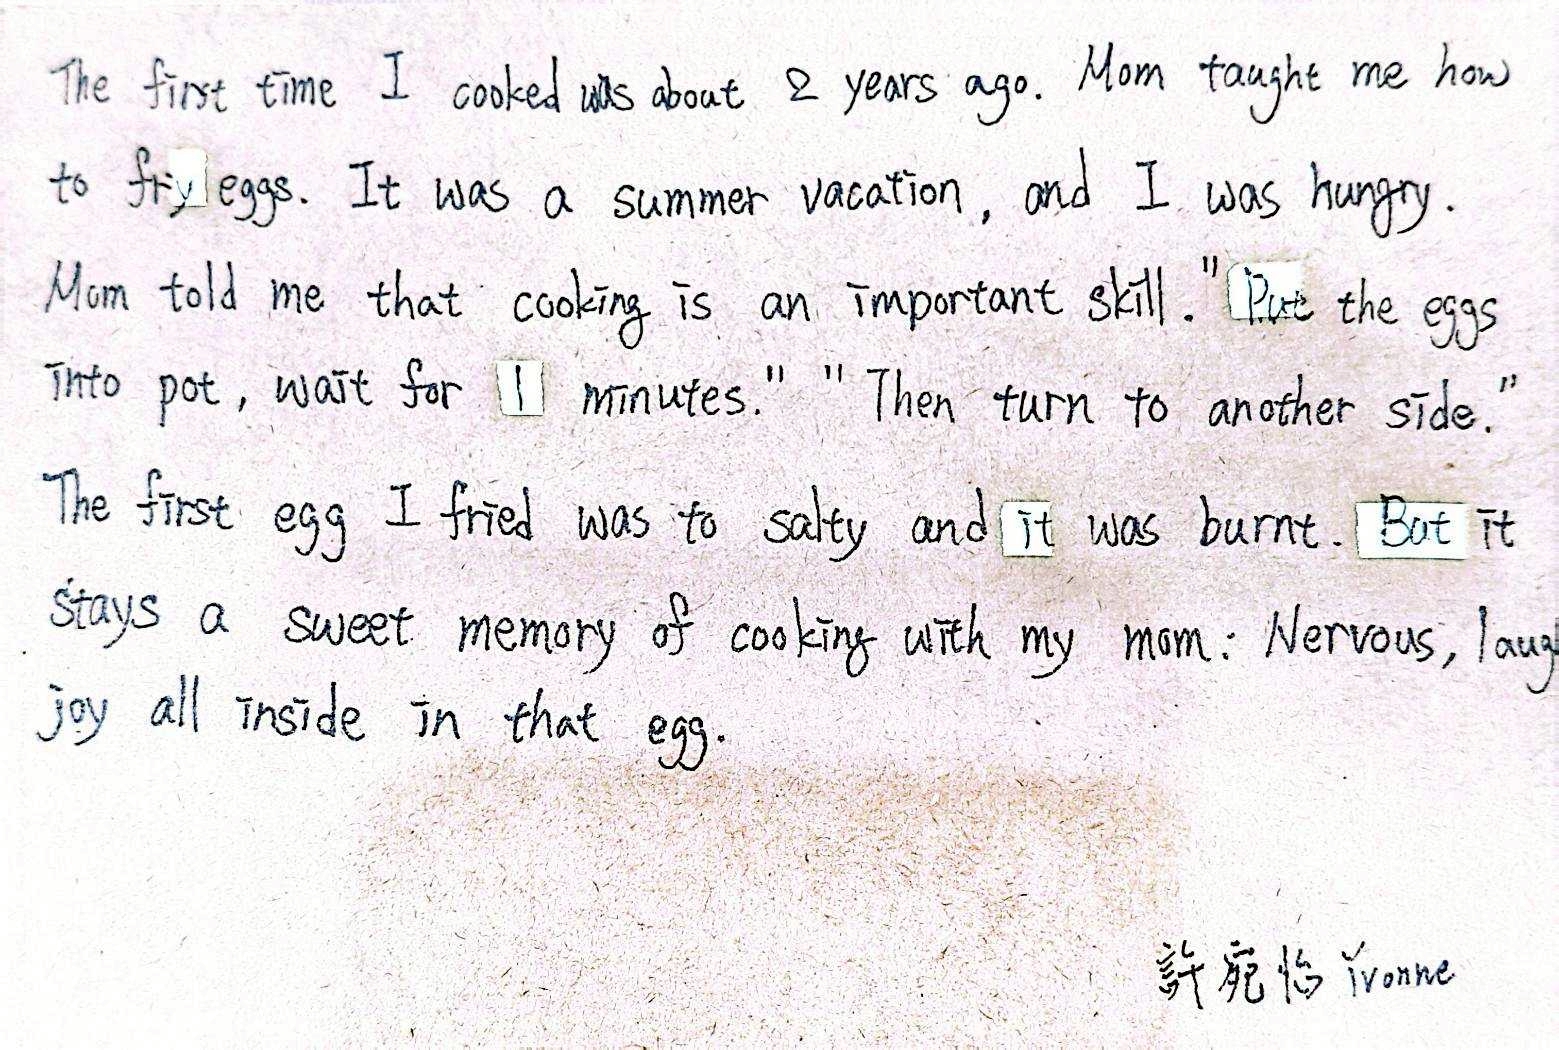 The first time I cooked was about 2 years ago. Mom taught me how
to fry eggs. It was a summer vacation, and I was hungry.
Mom told me that cooking is an important skill. "Put the eggs
into pot, wait for 1 minutes." "Then turn to another side."
The first egg I fried was to salty and it was burnt. But it
stays a sweet memory of cooking with my mom: Nervous, laugh
joy all inside in that egg.
許宛怡 Ivonne